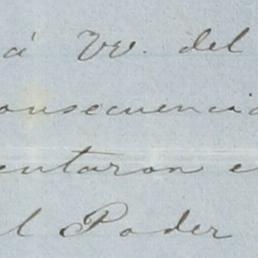 á VV. del
onsecuencia
entaron e
l Poder